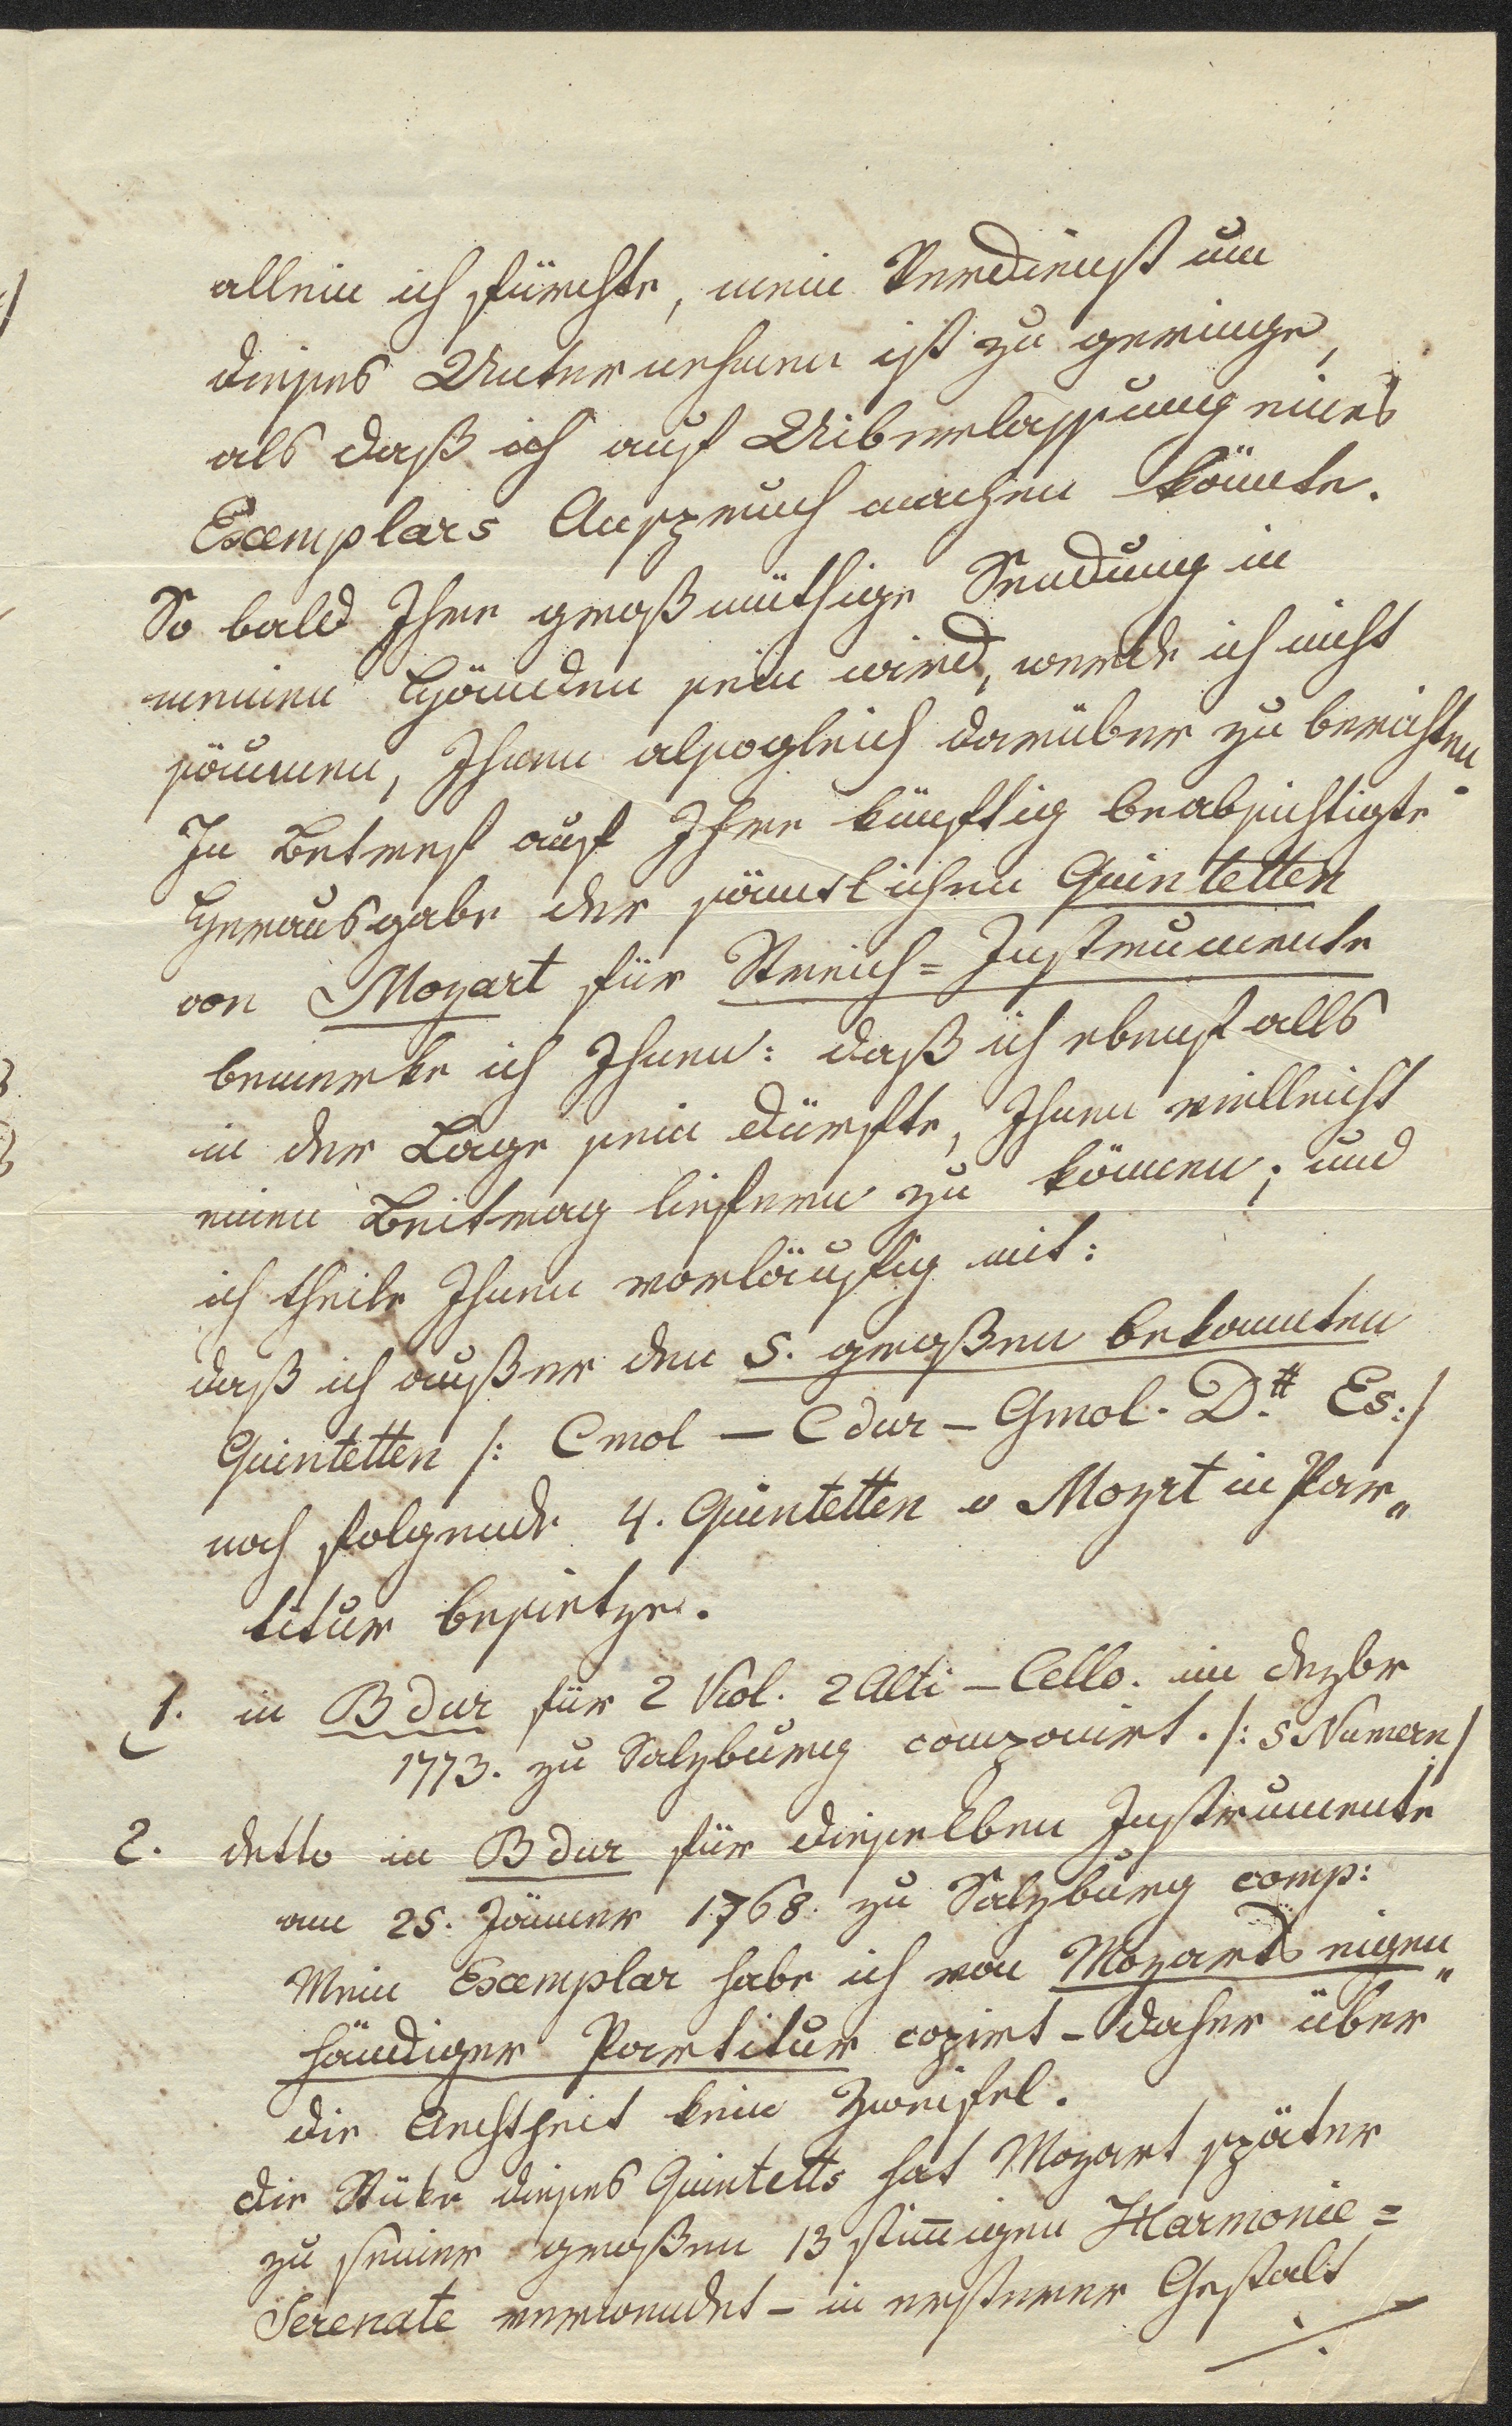 allein ich fürchte, mein Verdienst um
dieses Unternehmen ist zu geringe,
als daß ich auf Uiberlassung eines
Exemplars Anspruch machen könnte.
So bald Ihre großmüthige Sendung in
meinen Händen sein wird, werde ich nicht
säumen, Ihnen alsogleich darüber zu berichten.
In Betreff auf Ihre künftig beabsichtigte
Herausgabe der sämtlichen Quintetten
von Mozart für Streich=Instrumente
bemerke ich Ihnen: daß ich ebenfalls
in der Lage sein dürfte, Ihnen vielleicht
einen Beitrag liefern zu können; und
ich theile Ihnen vorläufig mit:
daß ich außer den 5. großen bekannten
Quintetten /: Cmol – Cdur – Gmol. D.# Es:/
noch folgende 4. Quintetten v Mozrt in Par„
titur besietze.
1. in Bdur für 2 Viol. 2 Alti – Cello. im Dezbr
1773. zu Salzburg componirt. /: 5 Numern:/
2. detto in Bdur für dieselben Instrumente
am 25. Jänner 1768. zu Salzburg comp:
Mein Exemplar habe ich von Mozarts eigen„
händiger Partitur copirt – daher über
die Aechtheit kein Zweifel.
Die Stüke dieses Quintetts hat Mozart später
zu seiner großen 13 stim̅igen Harmonie=
Serenate verwendet – in ersterer Gestalt
./.